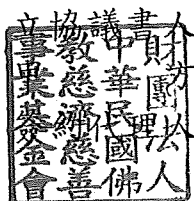 立協議書人
財團法人
中華民國佛
教慈濟慈善
事業基金會